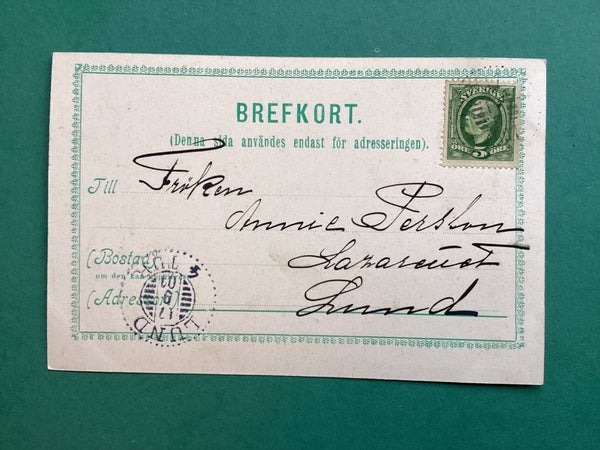 BREFKORT.
(Denna sida användes endast för adresseringen).
SVERIGE
ÖRE 5 ÖRE
Till
Fröken
Annie Persson
Lazarettet
Lund
(Bostad)
om den kan
(Adressort)
LUND
17 9 02